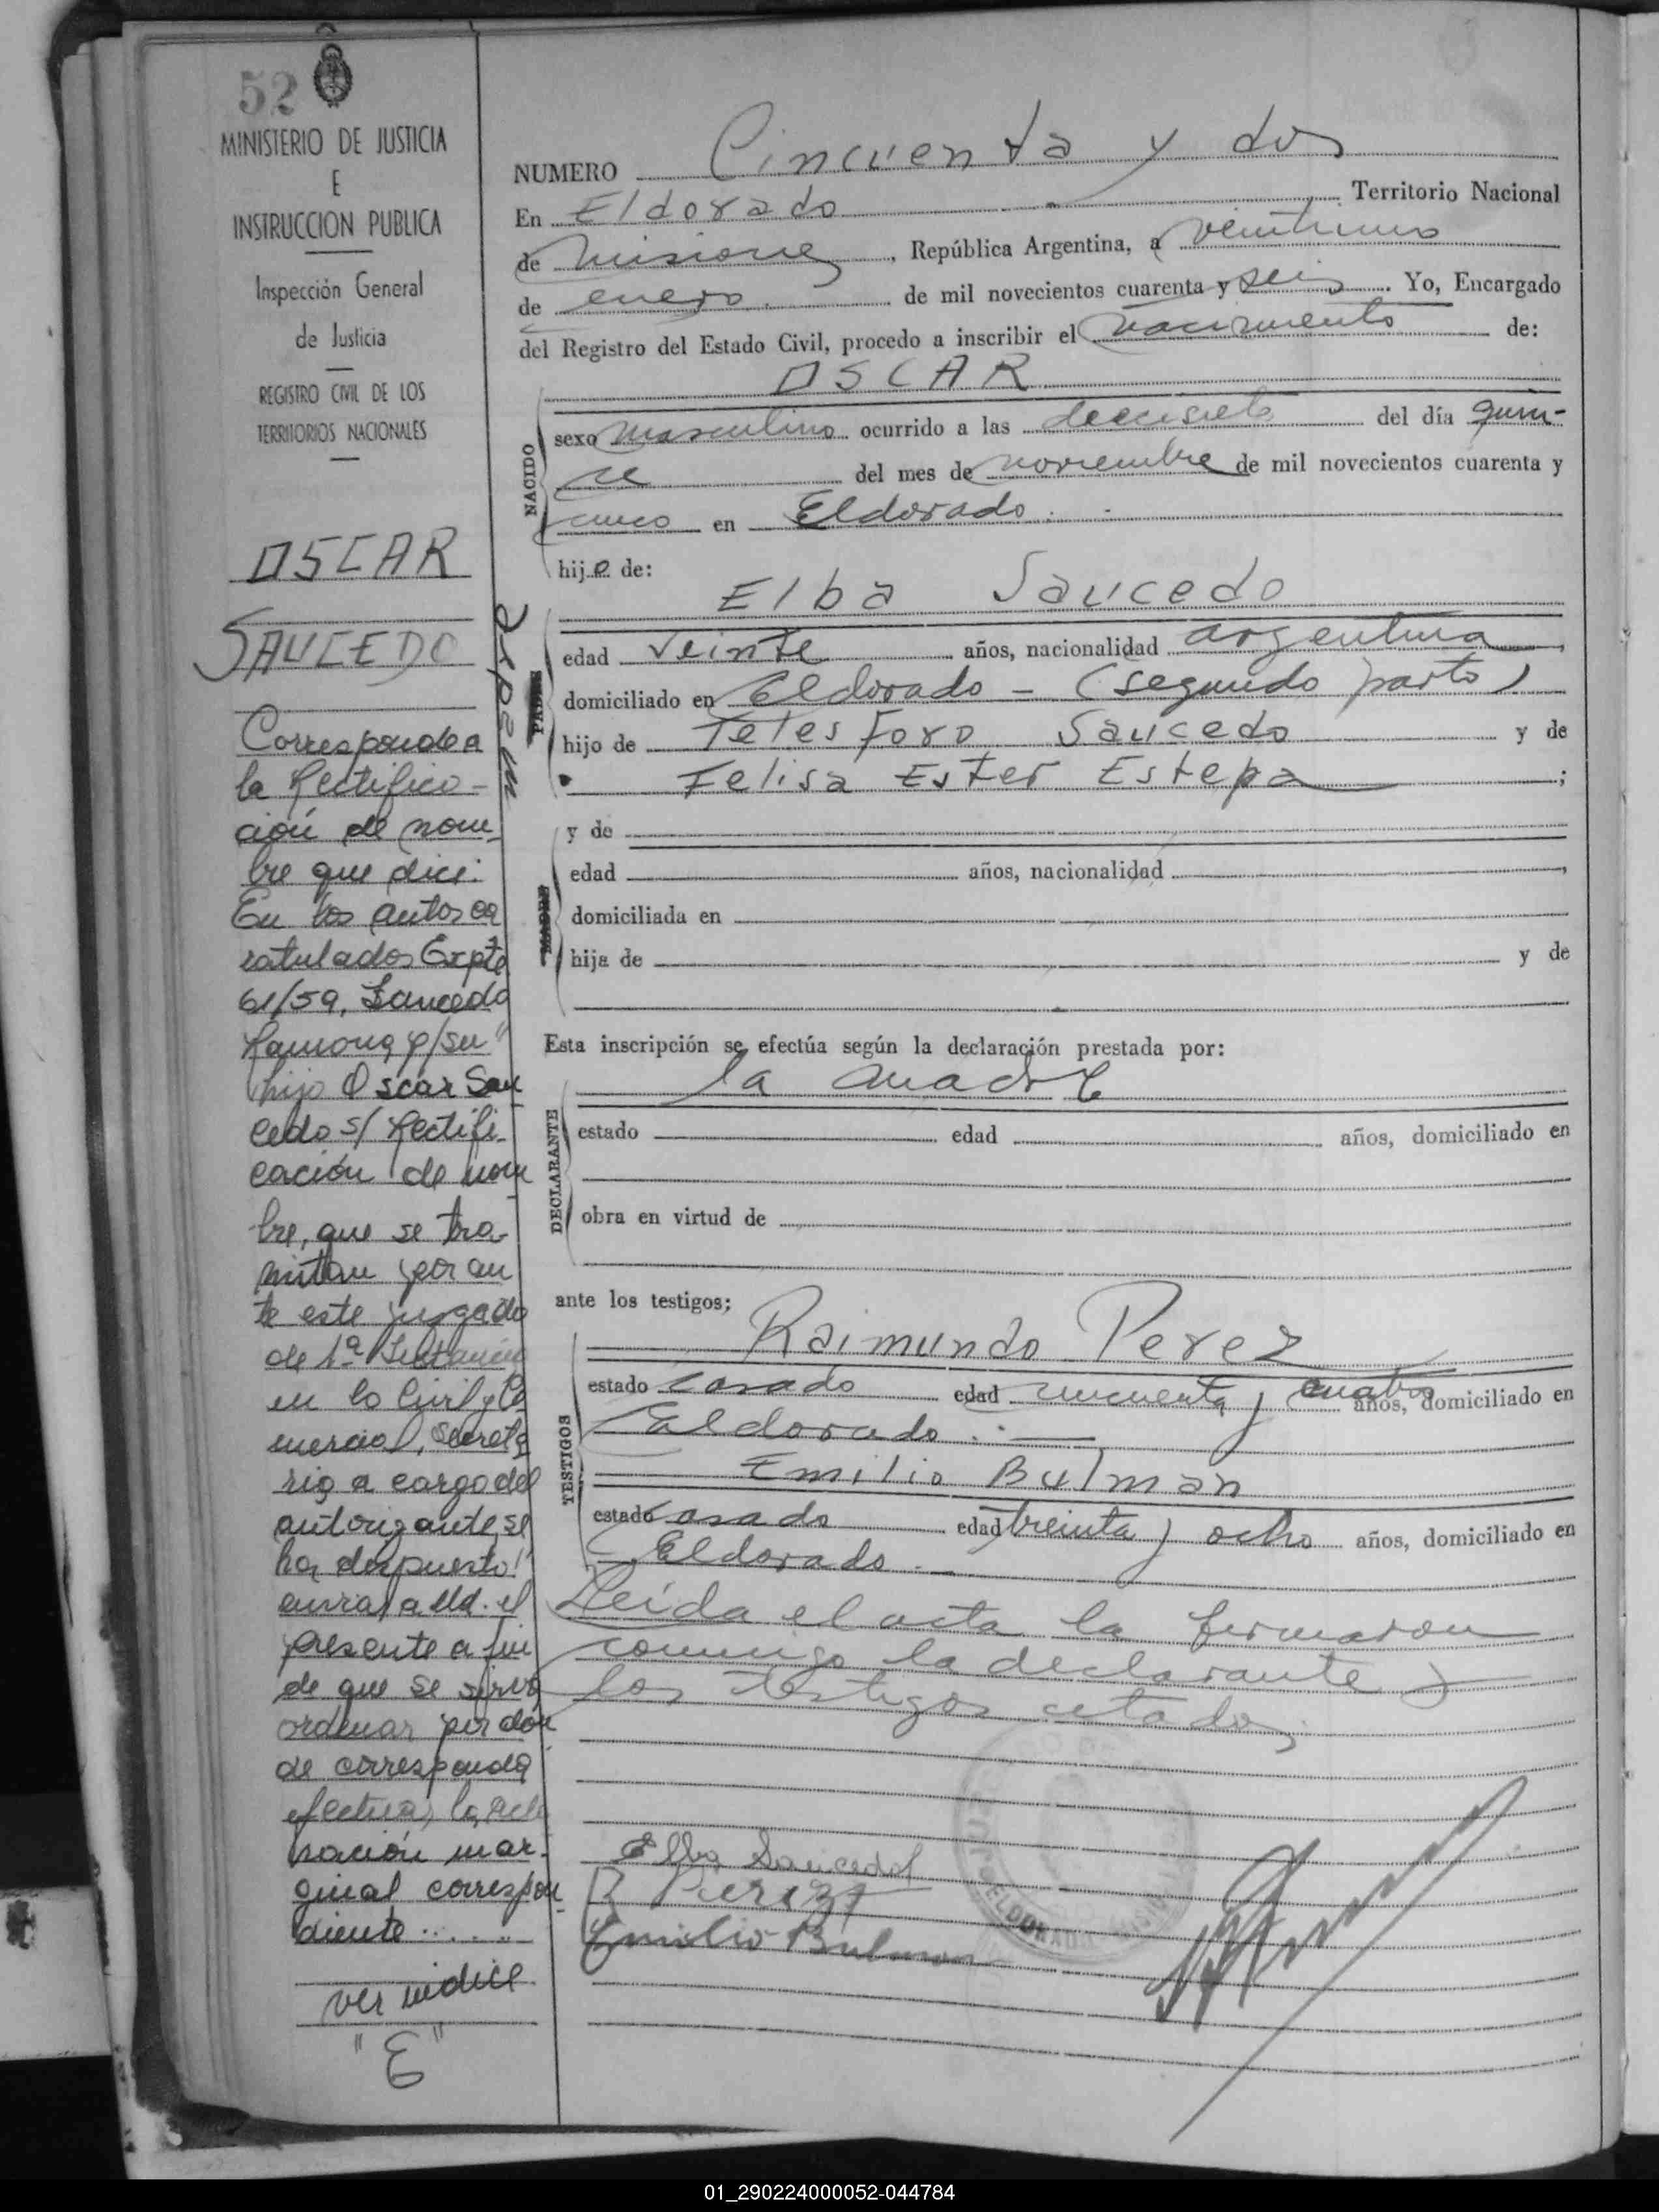 52
MINISTERIO DE JUSTICIA
E
INSTRUCCION PUBLICA
Inspección General
de Justicia
REGISTRO CIVIL DE LOS
TERRITORIOS NACIONALES
OSCAR
SAUCEDO
Corresponde a
la Rectifica-
ción de nom
bre que dice:
En los autos ca
ratulados Expte
61/59, Saucedo
Ramona p/su
hijo Oscar Sau
cedo s/ Rectifi-
cación de nom
bre, que se tra-
mitan por an
te este juzgado
de 1ª Instancia
en lo Civil y Co
mercial, Secreta
ria a cargo del
autorizante, se
ha dispuesto!
enviar a Ud. el
presente a fin
de que se sirva
ordenar por dón
de corresponda
efectuar la
marginal correspon
diente.....
ver indice
"E"
NUMERO Cincuenta y dos
En Eldorado Territorio Nacional
de Misiones, República Argentina, a veintiuno
de enero de mil novecientos cuarenta y seis. Yo, Encargado
del Registro del Estado Civil, procedo a inscribir el nacimiento de:
OSCAR
NACIDO
sexo masculino ocurrido a las diecisiete del día quin-
ce del mes de noviembre de mil novecientos cuarenta y
cinco en Eldorado.
hijo de:
Elba Saucedo
PADRE
edad veinte años, nacionalidad argentina,
domiciliado en Eldorado - (segundo parto)
hijo de Telesforo Saucedo y de
Felisa Ester Estepa;
y de
MADRE
edad años, nacionalidad,
domiciliada en
hija de y de
Esta inscripción se efectúa según la declaración prestada por:
la madre
DECLARANTE
estado edad años, domiciliado en
obra en virtud de
ante los testigos;
Raimundo Perez
TESTIGOS
estado casado edad cincuenta y cuatro años, domiciliado en
Eldorado.
Emilio Bulman
estado casado edad treinta y ocho años, domiciliado en
Eldorado.
Leída el acta la firmaron
conmigo la declarante y
los testigos citados.
Elba Saucedo
R Perez
Emilio Bulman
ELDORADO
01_290224000052-044784